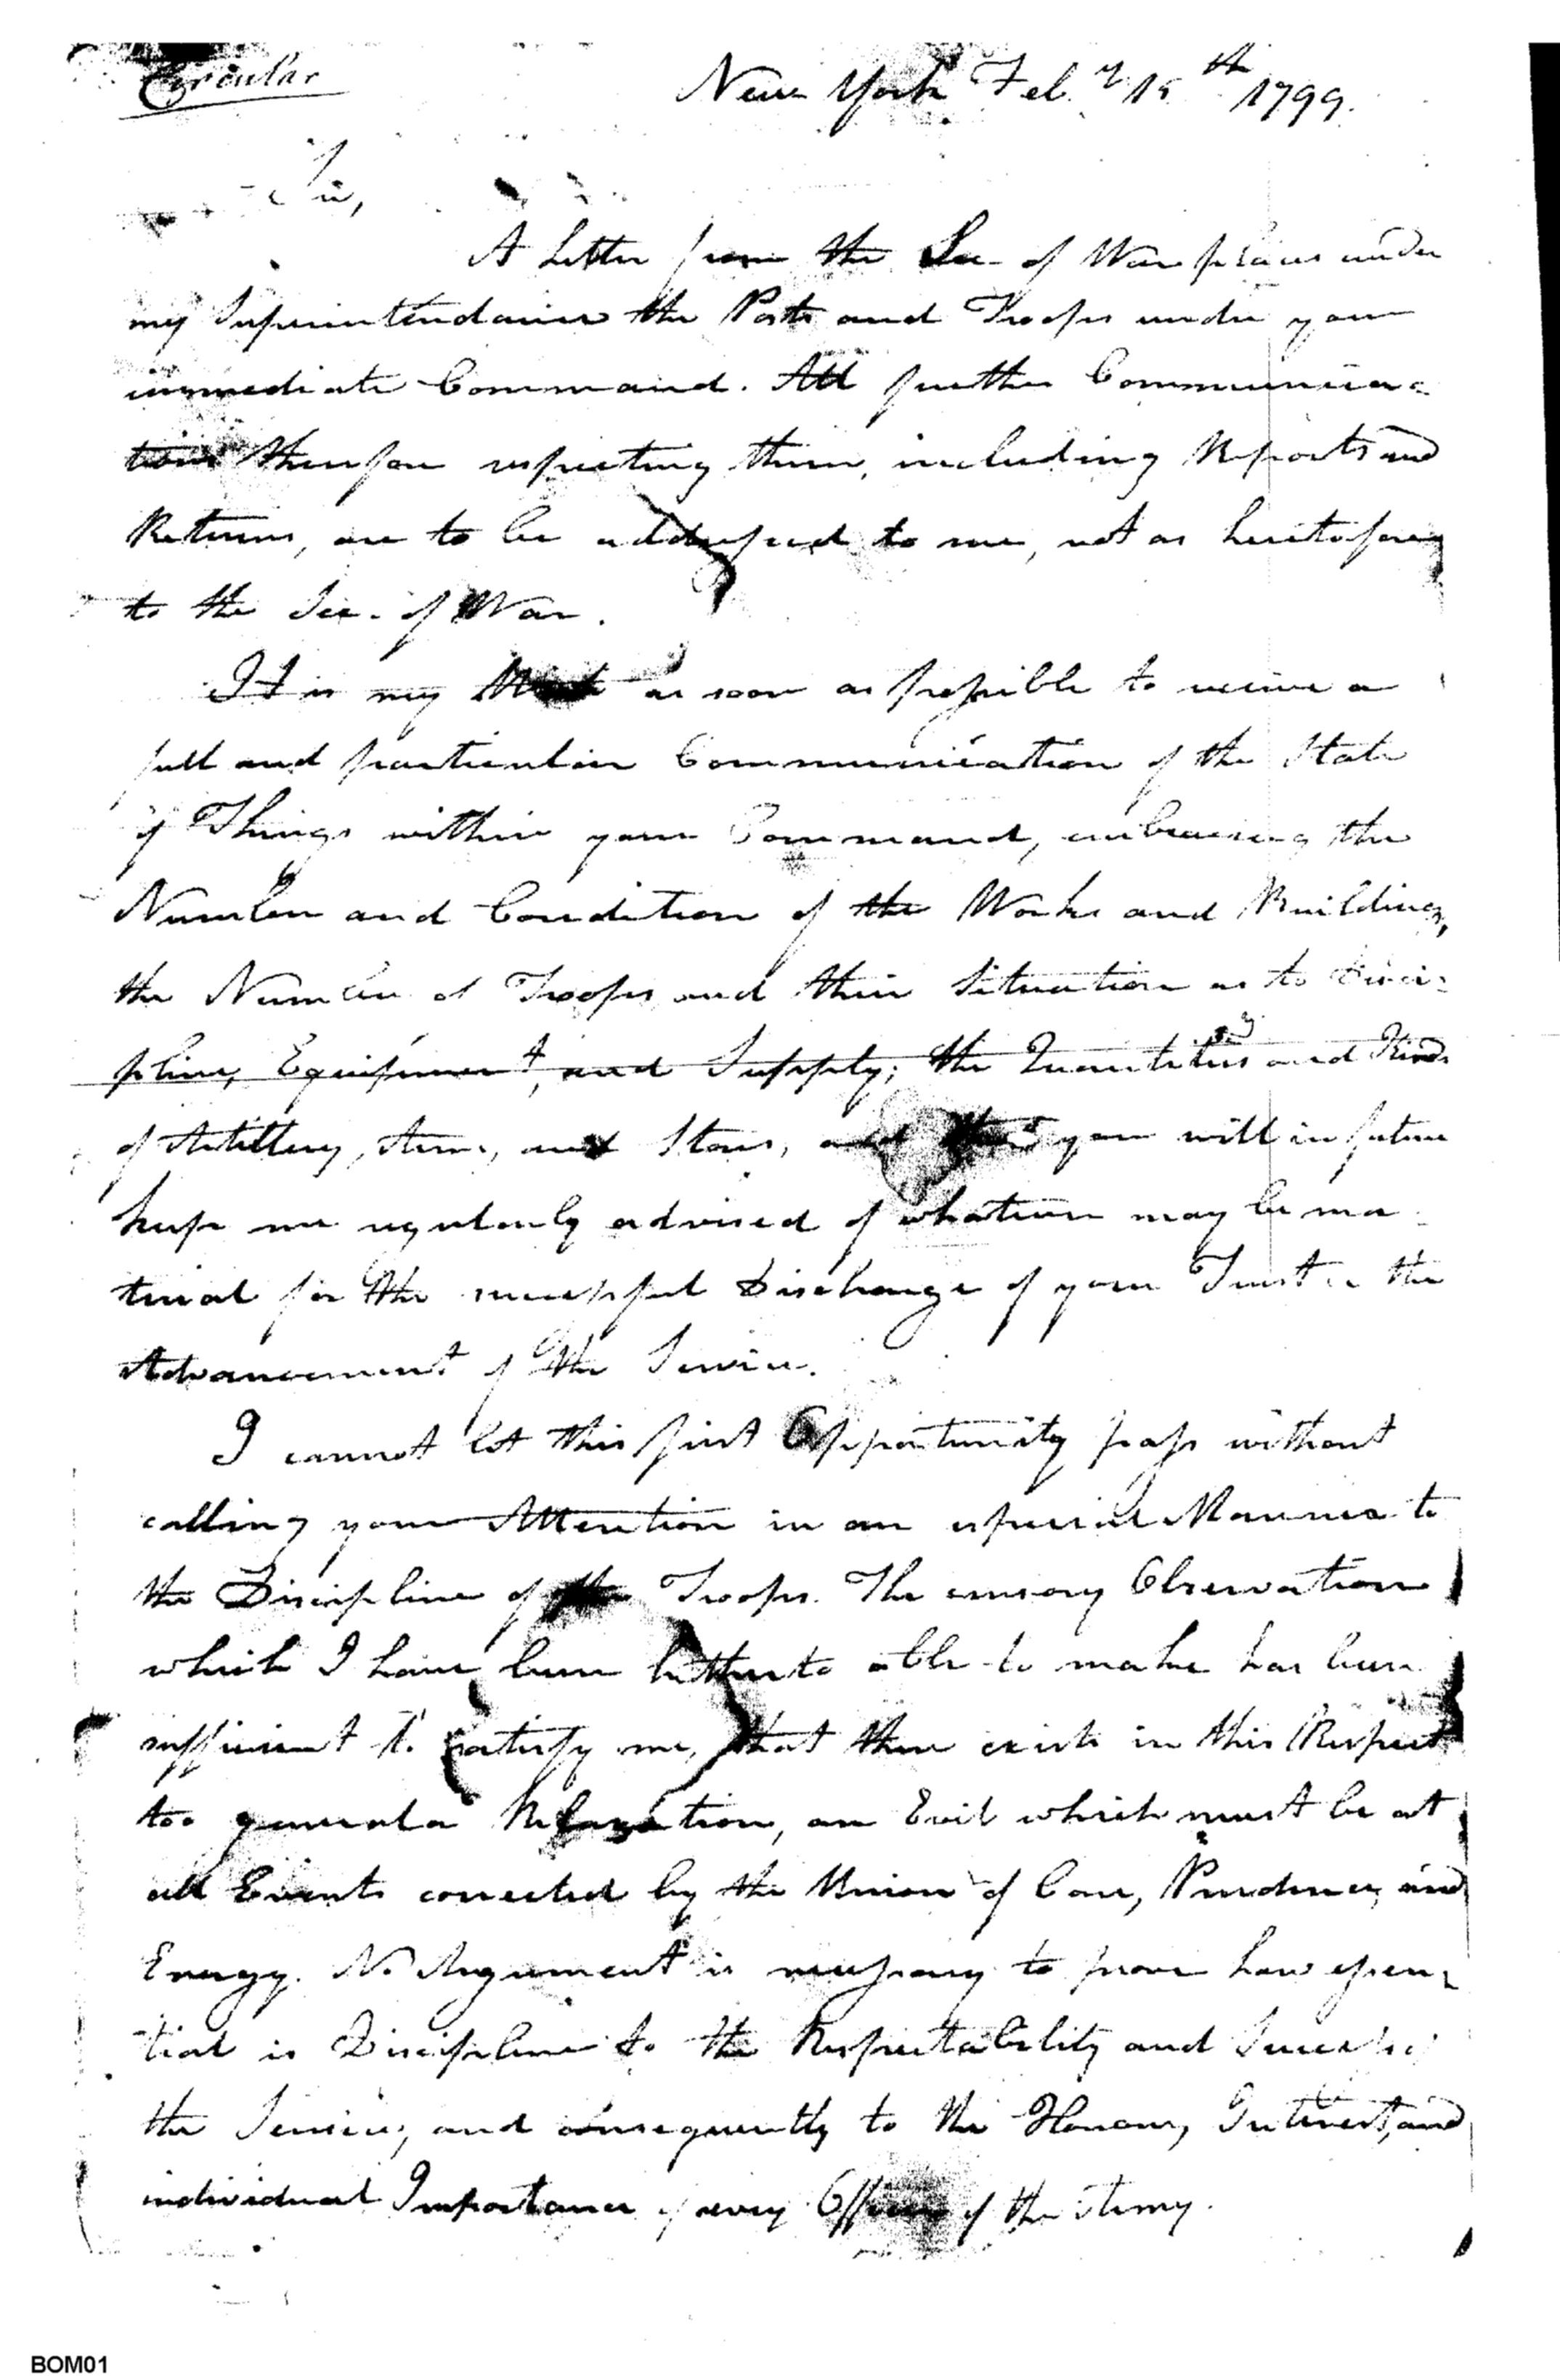 Circular
New York Feb.y 15th 1799.
Sir,
A Letter from the Sec. of War places under
my Superintendance the Posts and Troops under your
immediate Command. All further Communica=
tions therefore respecting them, including Reports and
Returns, are to be addressed to me, not as heretofore
to the Sec. of War.
It is my as soon as possible to receive a
full and particular Communication of the State
of Things within your Command, embracing the
Number and Condition of the Works and Buildings,
the Number of Troops and their Situation as to Disci=
pline, Equipment, and Supply; the Quantities and Kinds
of Artillery, Arms, and Stores, and you will in future
keep me regularly advised of whatever may be ma
terial for the successful Discharge of your Trust or the
Advancement of the Service.
I cannot let this first Opportunity pass without
calling your Attention in an especial Manner to
the Discipline of the Troops. The cursory Observation
which I have been hitherto able to make has been
sufficient to satisfy me, that there exists in this Respect
too general a Relaxation, an Evil which must be at
all Events corrected by the Union of Care, Prudence, and
Energy. No Argument is necessary to prove how essen=
tial is Discipline to the Respectability and Success of
the Service, and consequently to the Honour, Interest, and
individual Importance of every Officer of the Army.
BOM01